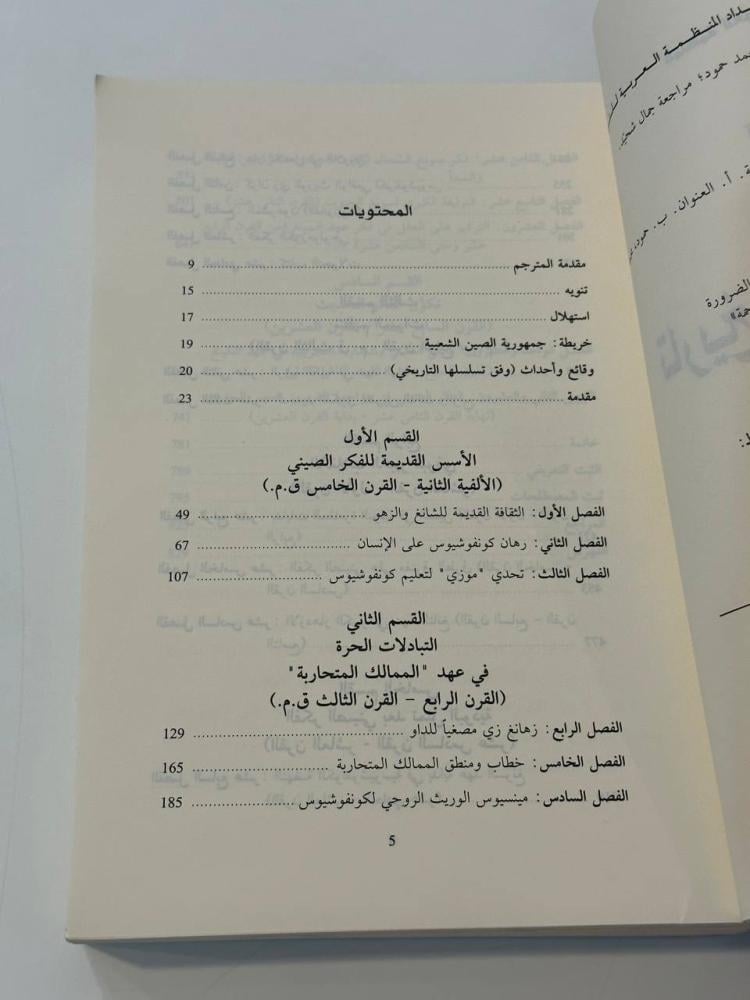 المحتويات
مقدمة المترجم ........ 9
تنويه ........ 15
استهلال ........ 17
خريطة: جمهورية الصين الشعبية ........ 19
وقائع وأحداث (وفق تسلسلها التاريخي) ........ 20
مقدمة ........ 23
القسم الأول
الأسس القديمة للفكر الصيني
(الألفية الثانية - القرن الخامس ق.م.)
الفصل الأول: الثقافة القديمة للشانغ والزهو ........ 49
الفصل الثاني: رهان كونفوشيوس على الإنسان ........ 67
الفصل الثالث: تحدي "موزي" لتعليم كونفوشيوس ........ 107
القسم الثاني
التبادلات الحرة
في عهد "الممالك المتحاربة"
(القرن الرابع – القرن الثالث ق.م.)
الفصل الرابع: زهانغ زي مصغياً للداو ........ 129
الفصل الخامس: خطاب ومنطق الممالك المتحاربة ........ 165
الفصل السادس: مينسيوس الوريث الروحي لكونفوشيوس ........ 185
5
المنظمة العربية
حمود؛ مراجعة جمال
أ. العنوان. ب. حمود،
الضرورة